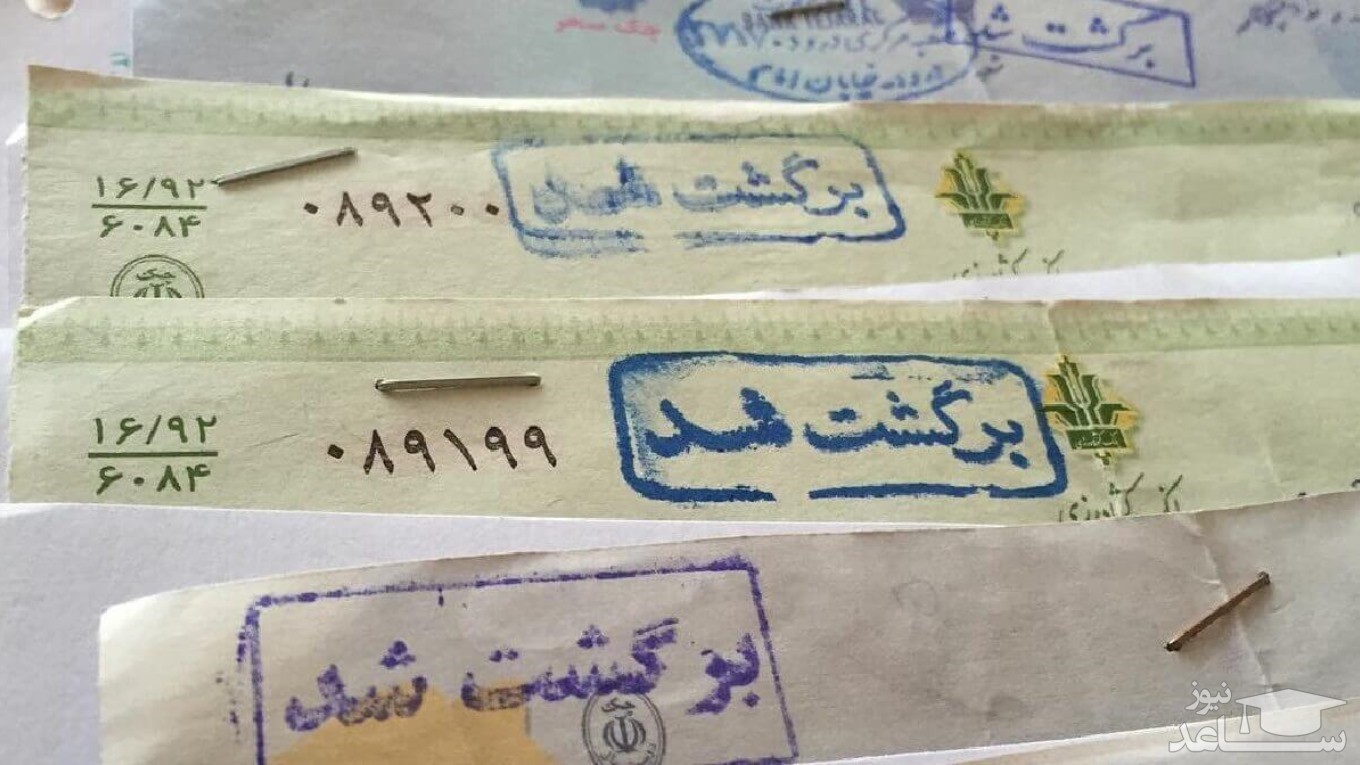 BANK TEJARAT
برگشت شد
۱۶/۹۲
۶۰۸۴
۰۸۹۲۰۰
برگشت شد
چک
۱۶/۹۲
۶۰۸۴
۰۸۹۱۹۹
برگشت شد
برگشت شد
چک
نیوز
ساعد